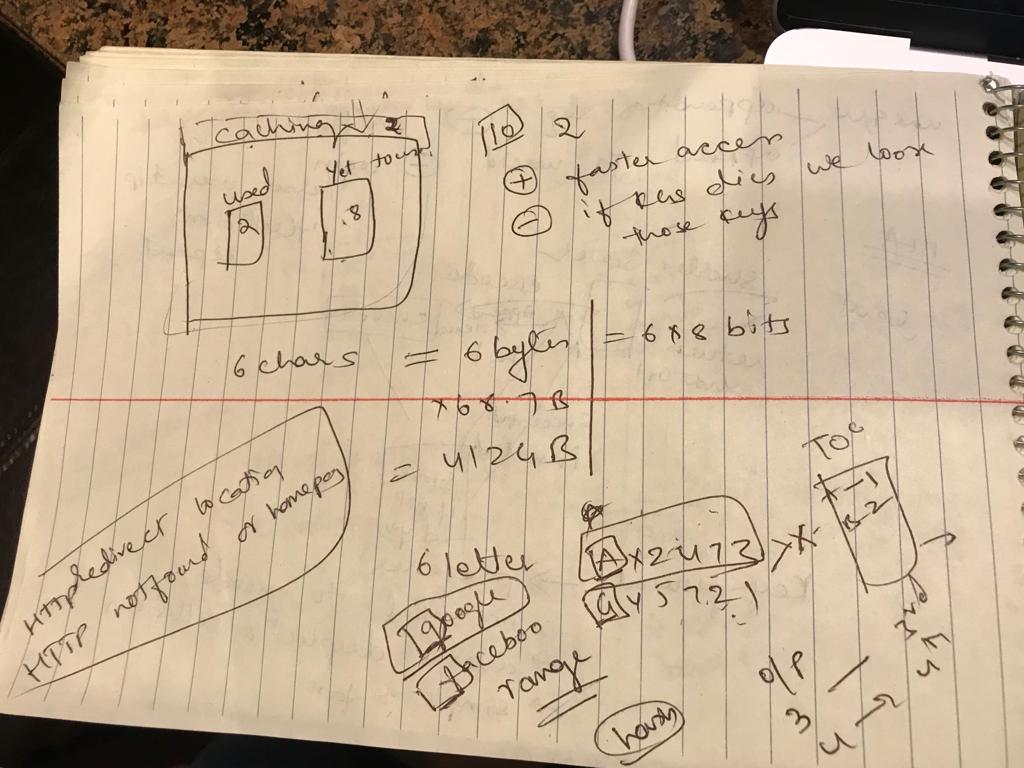 caching 2
used
Yet to use
2
.8
10 2
+ faster access
- if kgs dies we loose
those keys
6 chars = 6 bytes = 6*8 bits
* 68.7B
= 412.4B
HTTPRedirect location
HTTP notfound or homepag
6 letter
google
faceboo
range
A x2477
G 45721
hash
o/p
3
4